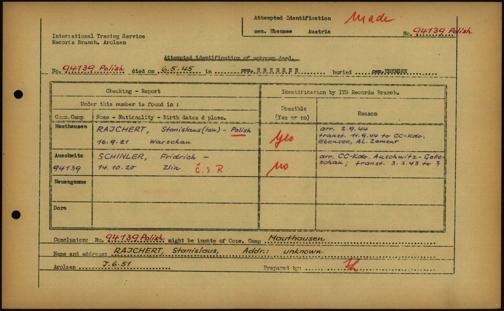 Attempted Identification Made
cem. Ebensee Austria No. 94139 Polish
International Tracing Service
Records Branch, Arolsen
Attempted identification of unknown dead.
No. 94139 Polish died on 6.5.45 in E B E N S E E buried
Checking - Report
Identification by ITS Records Branch.
Under this number is found in :
Possible (Yes or no)
Reason
Conc. Camp Name - Nationality - Birth dates & place.
Mauthausen RAJCHERT, Stanislaus - Polish Yes arr. 2.9.44
16.9.21 Warschau transf. 11.9.44 to CC-Kdo. Ebensee, AL. Zement
Auschwitz SCHINLER, Fridrich - no arr. CC-Kdo. Auschwitz-Golleschau; transf. 3.3.43 to ?
94139 14.10.20 Zlin Č.S R
Neuengamme
Dora
Conclusion: No. 94139 Polish might be inmate of Conc. Camp Mauthausen
Name and address: RAJCHERT, Stanislaus, Addr: unknown
Arolsen 7.6.51 Prepared by: